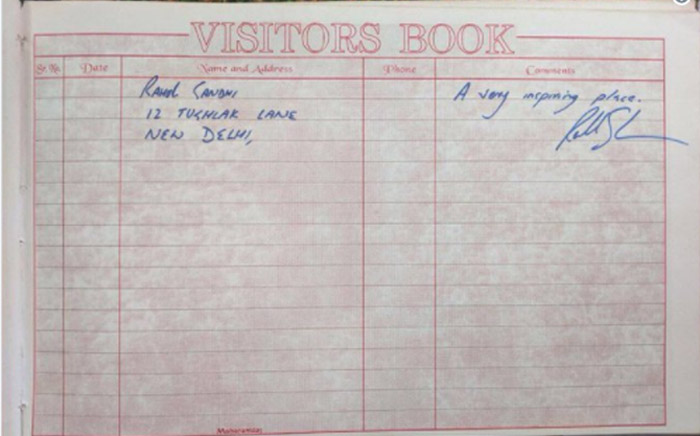 VISITORS BOOK
Sr.No. Date Name and Address Phone Comments
RAHUL GANDHI A very inspiring place.
12 TUGHLAK LANE
NEW DELHI,